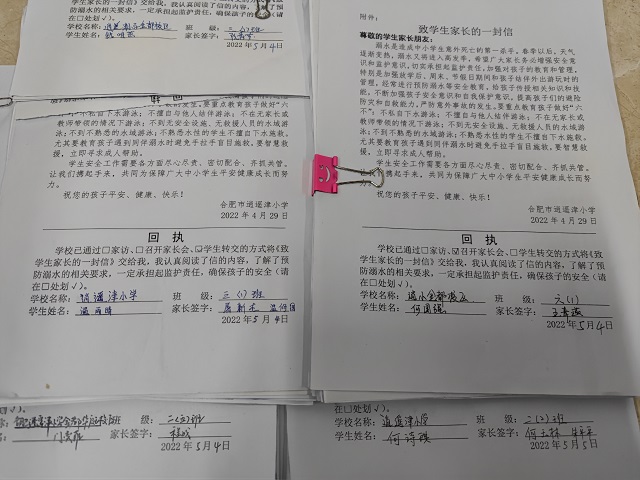 学生家长的一封信》交给我,我认真阅读了信的内容,了解了预
防溺水的相关要求,一定承担起监护责任,确保孩子的安全(请
在□处划√)。
学校名称: 班 级: 三(1)班
学生姓名: 家长签字:
2022年5月4日
六不”:不私自下水游泳;不擅自与他人结伴游泳;不在无家长或
教师带领的情况下游泳;不到无安全设施、无救援人员的水域游
泳;不到不熟悉的水域游泳;不熟悉水性的学生不擅自下水施救。
尤其要教育孩子遇到同伴溺水时避免手拉手盲目施救,要智慧救
援,立即寻求成人帮助。
学生安全工作需要各方面尽心尽责、密切配合、齐抓共管。
让我们携起手来,共同为保障广大中小学生平安健康成长而努
力。
祝您的孩子平安、健康、快乐!
合肥市逍遥津小学
2022年4月29日
回 执
学校已通过□家访、□召开家长会、☑学生转交的方式将《致
学生家长的一封信》交给我,我认真阅读了信的内容,了解了预
防溺水的相关要求,一定承担起监护责任,确保孩子的安全(请
在□处划√)。
学校名称: 逍遥津小学 班 级: 三(1)班
学生姓名: 家长签字:
2022年5月4日
在□处划√)。
班 级: 二(3)班
家长签字:
2022年5月4日
附件:
致学生家长的一封信
尊敬的学生家长朋友:
溺水是造成中小学生意外死亡的第一杀手。春季以后,天气
逐渐变热,溺水又将进入高发季,希望广大家长务必增强安全意
识和监护意识,切实承担起监护责任,加强对孩子的教育和管理,
特别是加强放学后、周末、节假日期间和孩子结伴外出游玩时的
管理,经常进行预防溺水等安全教育,给孩子传授相关知识和技
能,不断加强孩子安全意识和自我保护意识,提高孩子们的避险
防灾和自救能力,严防意外事故的发生。要重点教育孩子做好“六
不”:不私自下水游泳;不擅自与他人结伴游泳;不在无家长或
教师带领的情况下游泳;不到无安全设施、无救援人员的水域游
泳;不到不熟悉的水域游泳;不熟悉水性的学生不擅自下水施救。
尤其要教育孩子遇到同伴溺水时避免手拉手盲目施救,要智慧救
援,立即寻求成人帮助。
学生安全工作需要各方面尽心尽责、密切配合、齐抓共管。
让我们携起手来,共同为保障广大中小学生平安健康成长而努
力。
祝您的孩子平安、健康、快乐!
合肥市逍遥津小学
2022年4月29日
回 执
学校已通过□家访、☑召开家长会、□学生转交的方式将《致
学生家长的一封信》交给我,我认真阅读了信的内容,了解了预
防溺水的相关要求,一定承担起监护责任,确保孩子的安全(请
在□处划√)。
学校名称: 班 级: 六(1)
学生姓名: 何国强 家长签字:
2022年5月4日
在□处划√)。
学校名称: 逍遥津小学 班 级: 三(2)班
学生姓名: 何诗琪 家长签字:
2022年5月5日